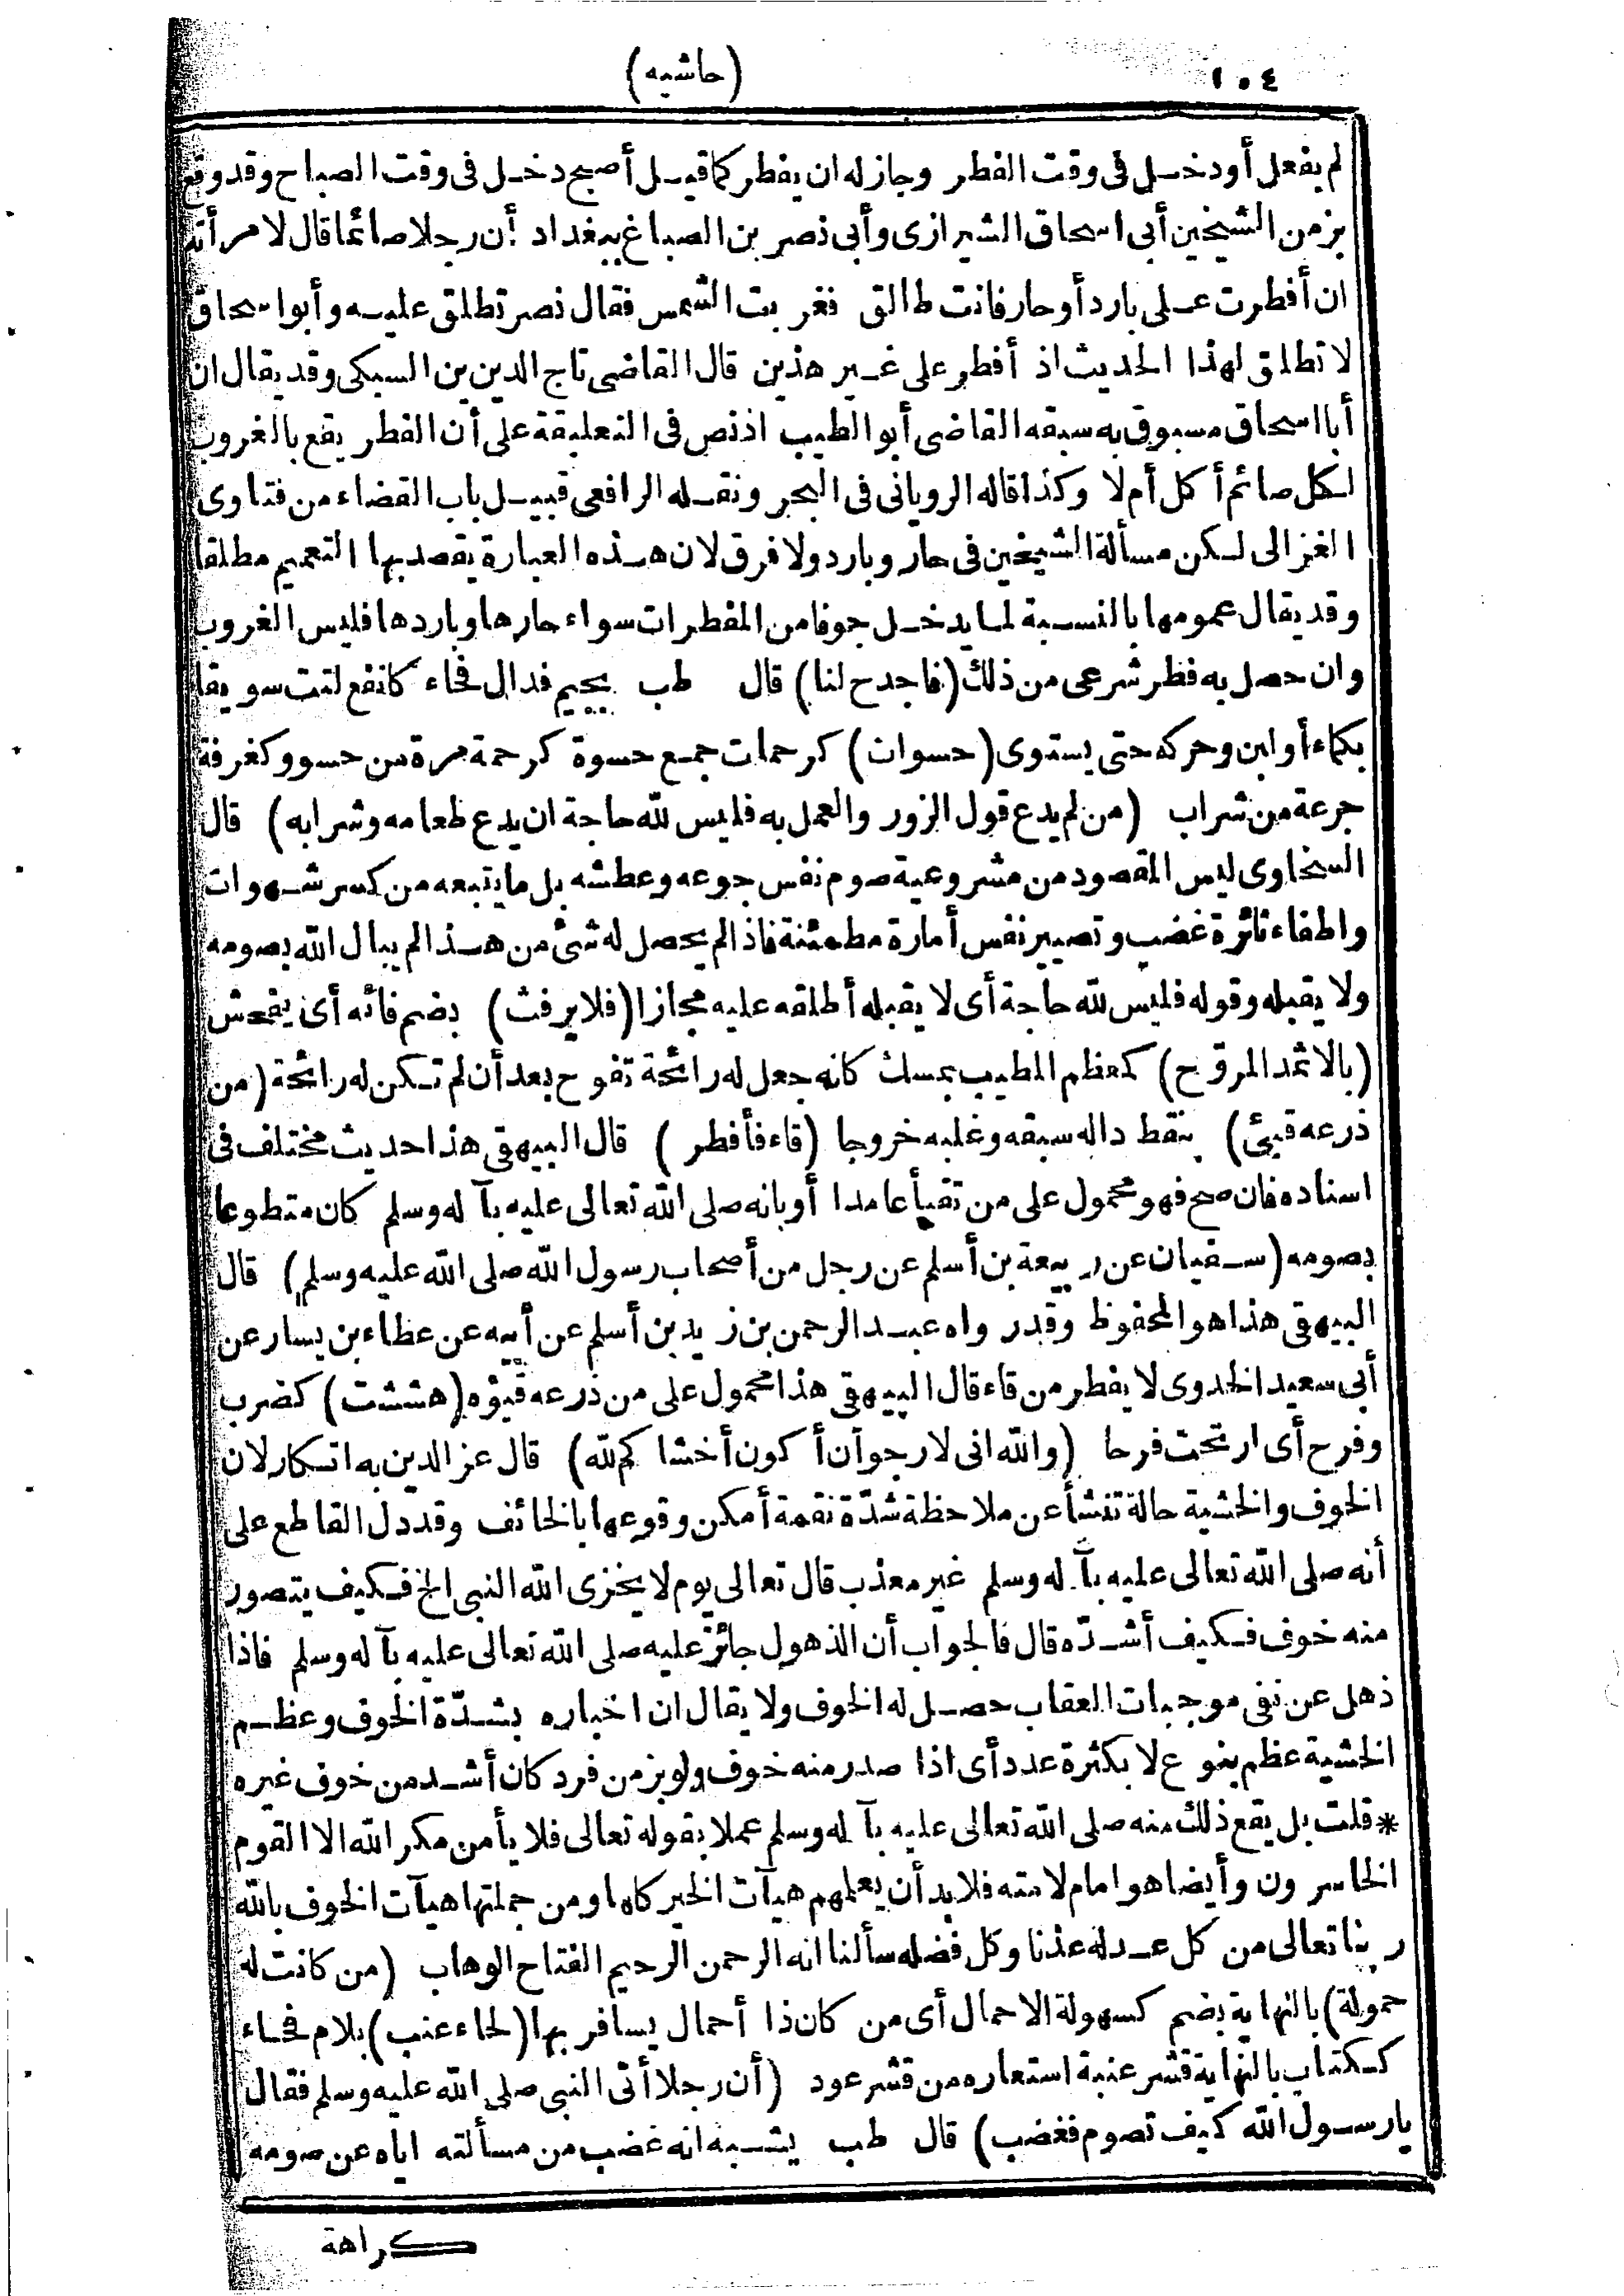 ١٠٤
(حاشيه)
لم يفعل أو دخل فى وقت الفطر وجاز له ان يفطر كما قيل أصبح دخل فى وقت الصباح وقد وقع
بزمن الشيخين أبى اسحاق الشيرازى وأبى نصر بن الصباغ ببغداد أن رجلا صائما قال لامرأته
ان أفطرت على بارد أو حار فانت طالق فغربت الشمس فقال نصر تطلق عليه وأبو اسحاق
لا تطلق لهذا الحديث اذ أفطر على غير هذين قال القاضى تاج الدين بن السبكى وقد يقال ان
أبا اسحاق مسبوق به سبقه القاضى أبو الطيب اذ نص فى التعليقة على أن الفطر يقع بالغروب
لكل صائم أكل أم لا وكذا قاله الرويانى فى البحر ونقله الرافعى قبيل باب القضاء من فتاوى
الغزالى لكن مسألة الشيخين فى حار وبارد ولا فرق لان هذه العبارة يقصد بها التعميم مطلقا
وقد يقال عمومها بالنسبة لما يدخل جوفا من المفطرات سواء حارها وباردها فليس الغروب
وان حصل به فطر شرعى من ذلك (فاجدح لنا) قال طب بجيم فدال فحاء كانفع لتت سويقا
بكماء أو لبن وحركه حتى يستوى (حسوان) كرحمات جمع حسوة كرحمة مرة من حسو وكغرفة
جرعة من شراب (من لم يدع قول الزور والعمل به فليس لله حاجة ان يدع طعامه وشرابه) قال
السخاوى ليس المقصود من مشروعية صوم نفس جوعه وعطشه بل ما يتبعه من كسر شهوات
واطفاء نائرة غضب وتصيير نفس أمارة مطمئنة فاذا لم يحصل له شئ من هذا لم يبال الله بصومه
ولا يقبله وقوله فليس لله حاجة أى لا يقبله أطلقه عليه مجازا (فلا يرفث) بضم فائه أى يفحش
(بالاثمد المروّح) كمعظم المطيب بمسك كانه جعل له رائحة تفوح بعد أن لم تكن له رائحة (من
ذرعه قيئ) بنقط داله سبقه وغلبه خروجا (قاء فأفطر) قال البيهقى هذا حديث مختلف فى
اسناده فان صح فهو محمول على من تقيأ عامدا أو بانه صلى الله تعالى عليه بآله وسلم كان متطوعا
بصومه (سفيان عن ربيعة بن أسلم عن رجل من أصحاب رسول الله صلى الله عليه وسلم) قال
البيهقى هذا هو المحفوظ وقد رواه عبد الرحمن بن زيد بن أسلم عن أبيه عن عطاء بن يسار عن
أبى سعيد الخدوى لا يفطر من قاء قال البيهقى هذا محمول على من ذرعه قيؤه (هششت) كضرب
وفرح أى ارتحت فرحا (والله انى لارجو أن أكون أخشاكم لله) قال عز الدين به اشكار لان
الخوف والخشية حالة تنشأ عن ملاحظة شدّة نقمة أمكن وقوعها بالخائف وقد دل القاطع على
أنه صلى الله تعالى عليه بآله وسلم غير معذب قال تعالى يوم لا يخزى الله النبى الخ فكيف يتصور
منه خوف فكيف أشدّه قال فالجواب أن الذهول جائز عليه صلى الله تعالى عليه بآله وسلم فاذا
ذهل عن نفى موجبات العقاب حصل له الخوف ولا يقال ان اخباره بشدّة الخوف وعظم
الخشية عظم بنوع لا بكثرة عدد أى اذا صدر منه خوف ولو بزمن فرد كان أشد من خوف غيره
* قلت بل يقع ذلك منه صلى الله تعالى عليه بآله وسلم عملا بقوله تعالى فلا يأمن مكر الله الا القوم
الخاسرون وأيضا هو امام لامته فلا بد أن يعلمهم هيآت الخير كاها ومن جملتها هيآت الخوف بالله
ربنا تعالى من كل عدله عذنا وكل فضله سألنا انه الرحمن الرحيم الفتاح الوهاب (من كانت له
حمولة) بالنهاية بضم كسهولة الاحمال أى من كان ذا أحمال يسافر بها (لحاء عنب) بلام فحاء
ككتاب بالنهاية قشر عنبة استعاره من قشر عود (أن رجلا أتى النبى صلى الله عليه وسلم فقال
يا رسول الله كيف تصوم فغضب) قال طب يشبه انه غضب من مسألته اياه عن صومه
كراهة